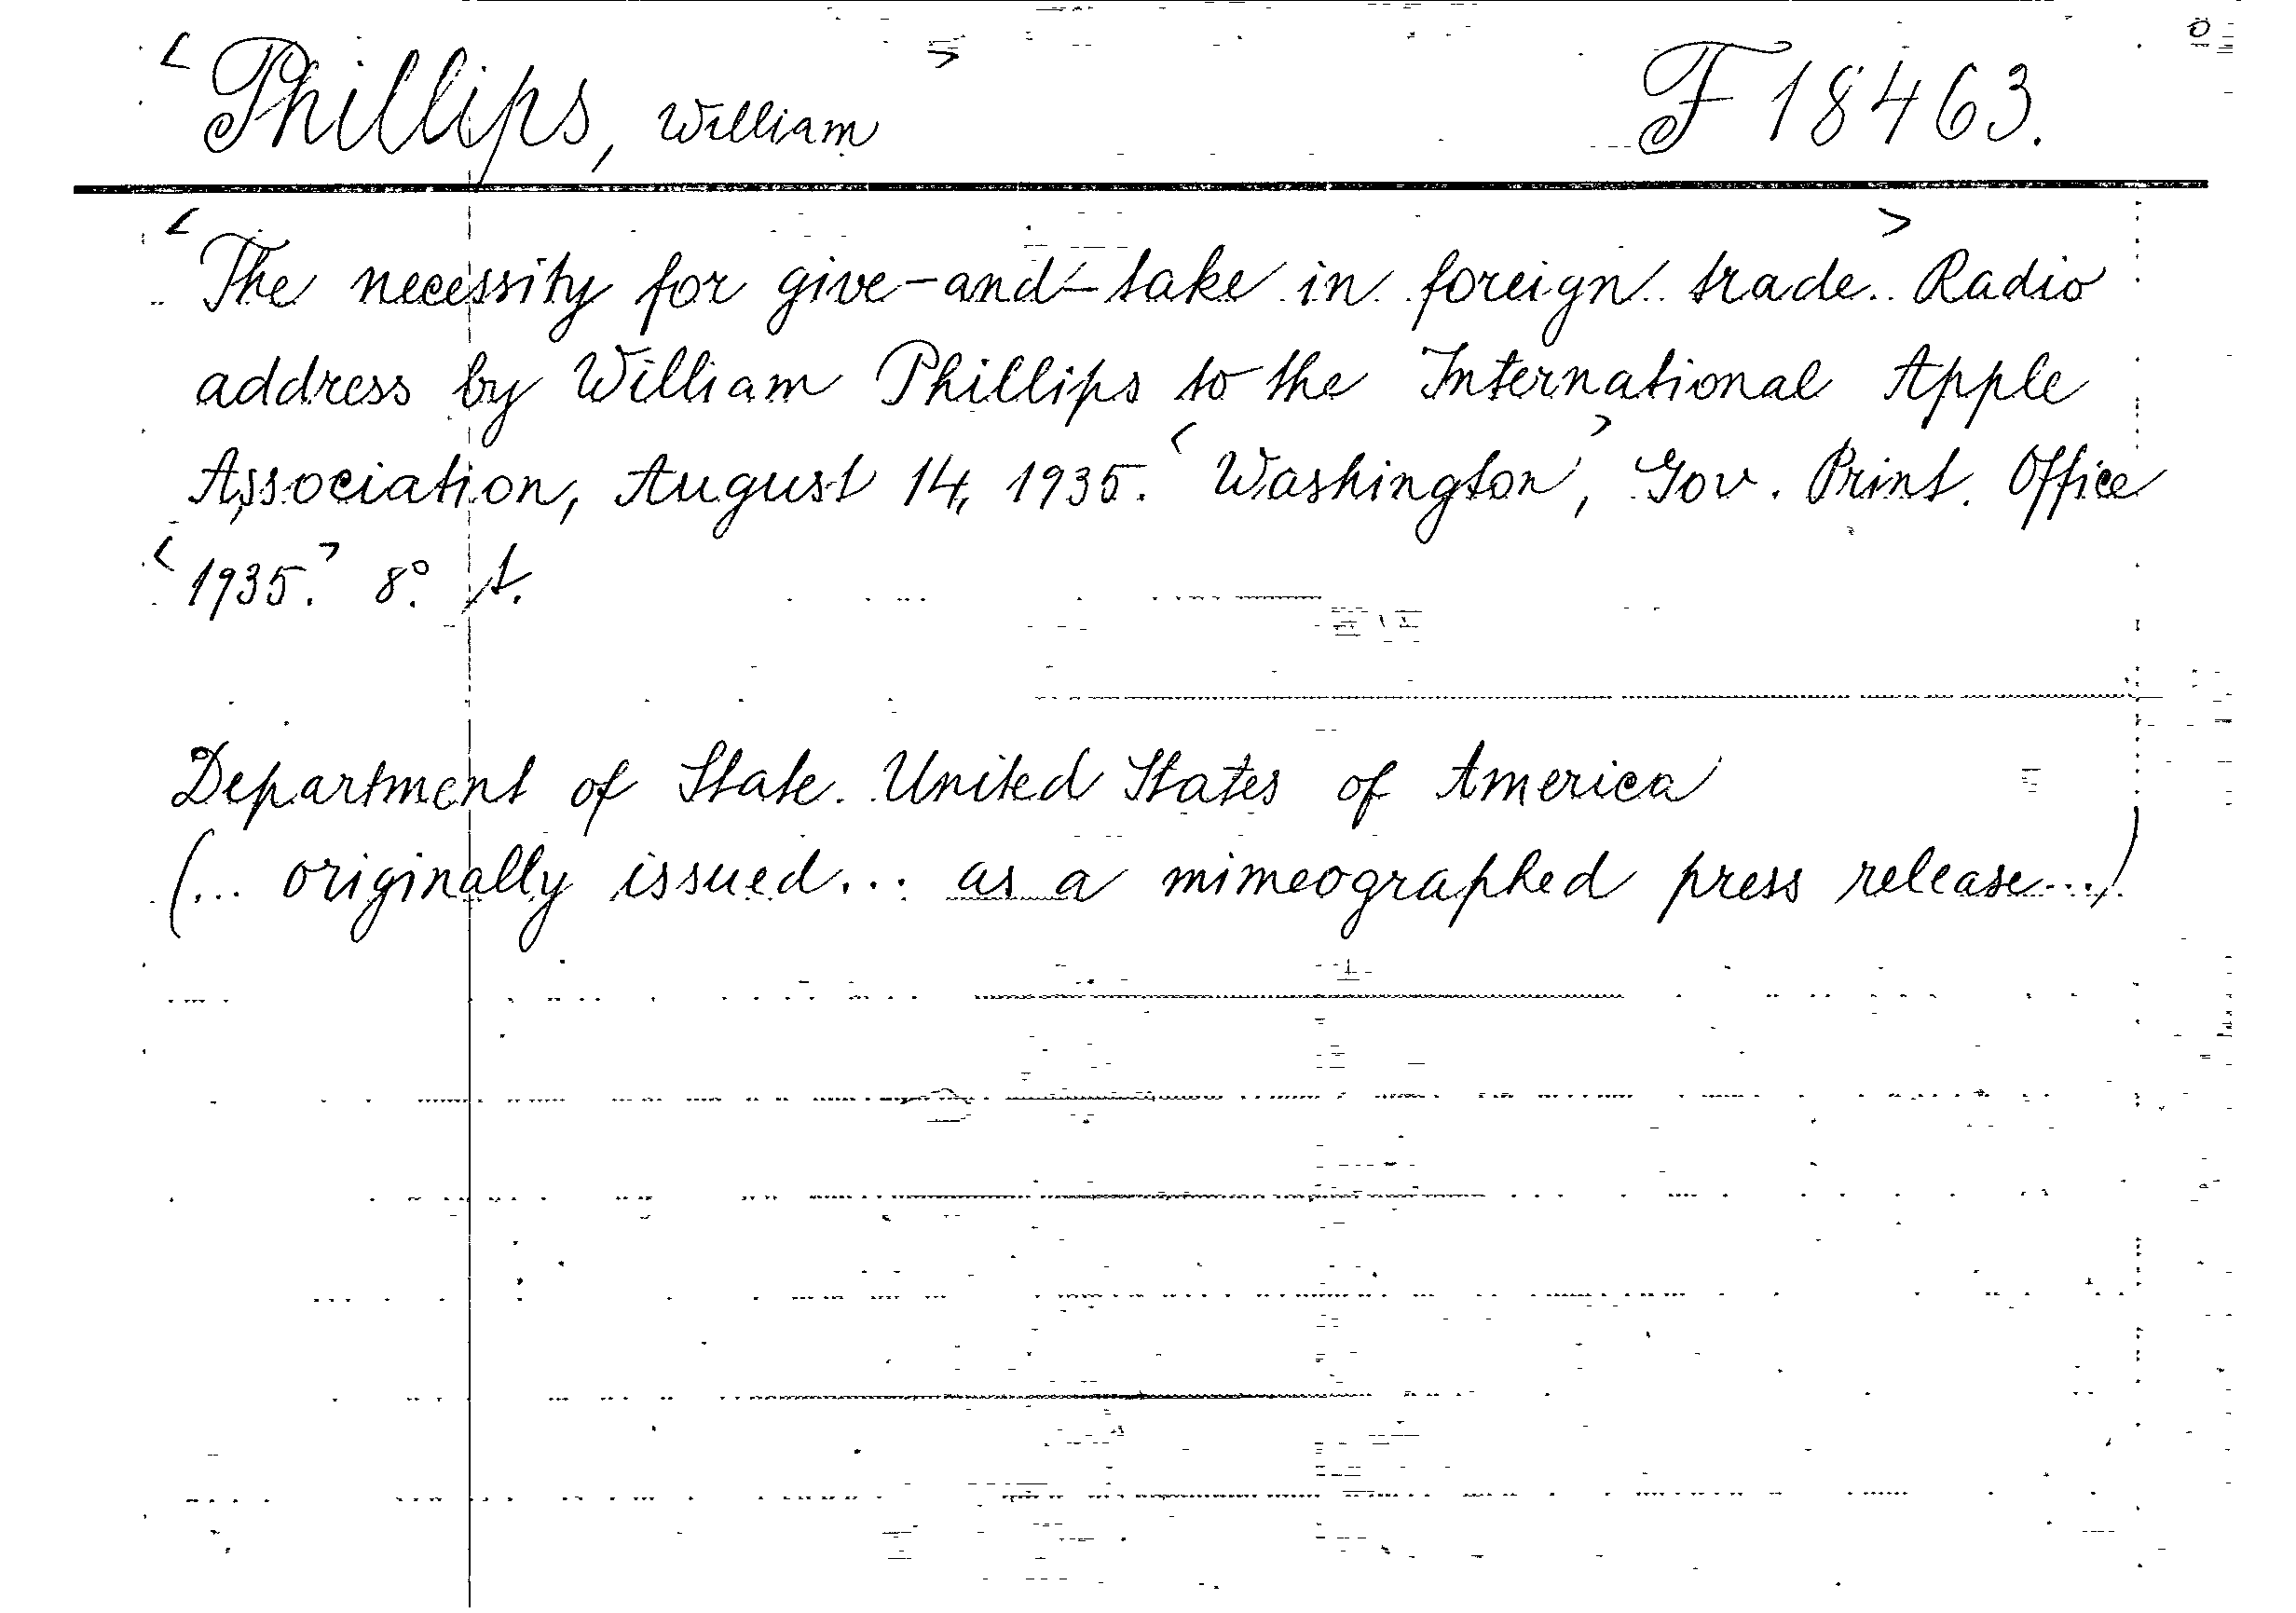 <Phillips, William> F 18463.
<The necessity for give-and-take in foreign trade.> Radio
address by William Phillips to the International Apple
Association, August 14, 1935. <Washington>, Gov. Print. Office
<1935.> 8°.
Department of State. United States of America
(... originally issued... as a mimeographed press release...)